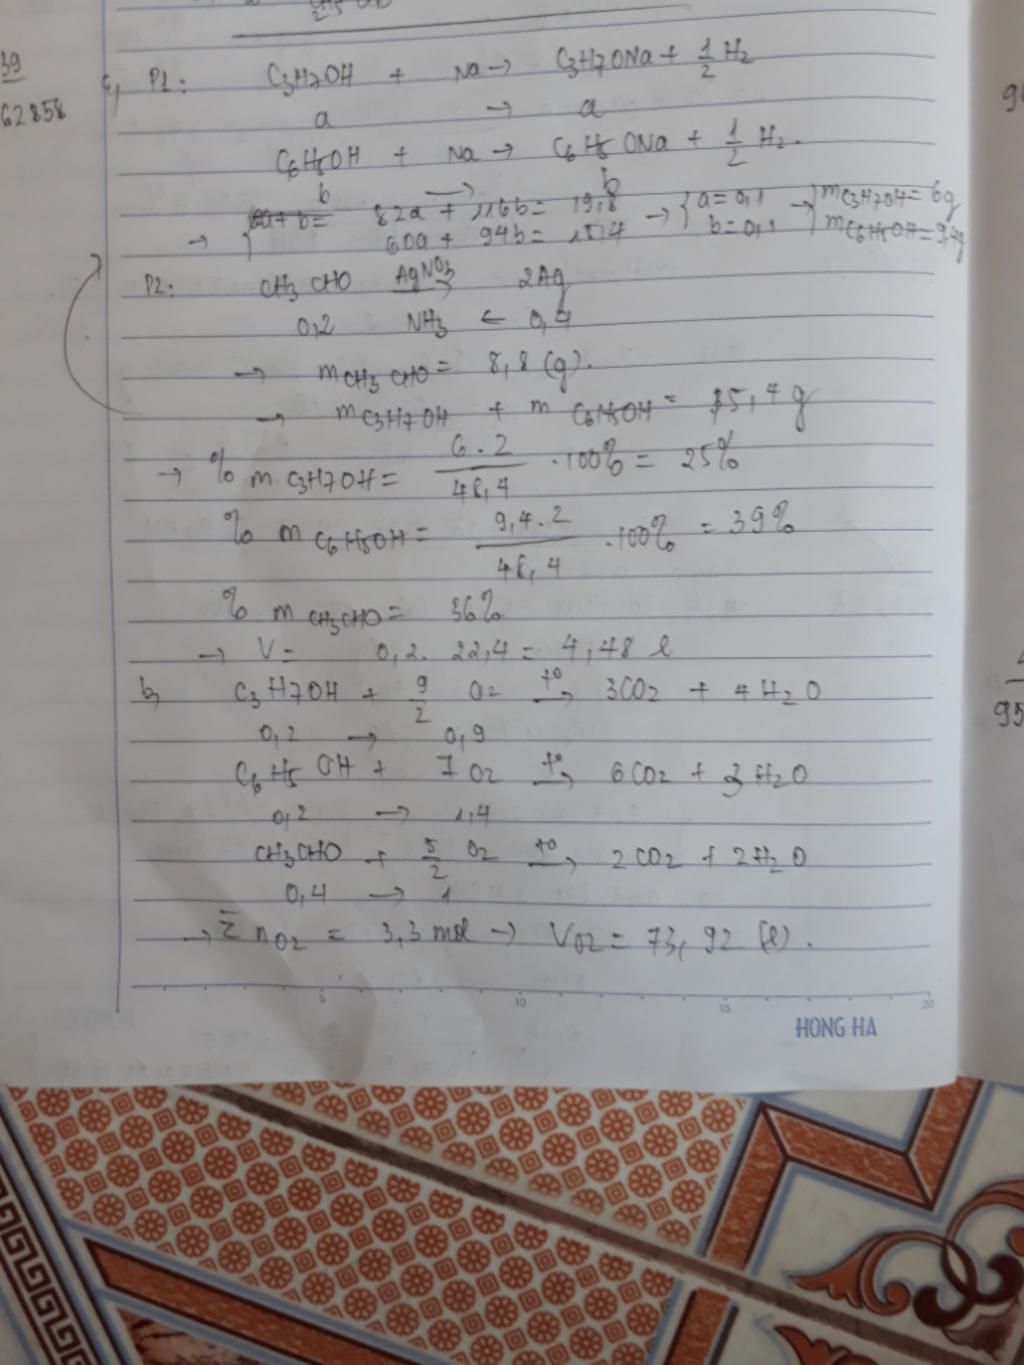 39
62858
a, P1: C3H7OH + Na → C3H7ONa + 1/2 H2
a → a
C6H5OH + Na → C6H5ONa + 1/2 H2.
b → b
→ { 82a + 116b = 19,8 → { a = 0,1 → { mC3H7OH = 6g
60a + 94b = 15,4 b = 0,1 mC6H5OH = 9,4g
P2: CH3CHO AgNO3→ 2Ag
0,2 NH3 ← 0,4
→ mCH3CHO = 8,8 (g).
→ mC3H7OH + mC6H5OH = 15,4 g
→ % mC3H7OH = 6.2/48,4 .100% = 25%
% mC6H5OH = 9,4.2/48,4 .100% = 39%
% mCH3CHO = 36%
→ V = 0,2. 22,4 = 4,48 l
b, C3H7OH + 9/2 O2 t°→ 3CO2 + 4H2O
0,2 → 0,9
C6H5OH + 7O2 t°→ 6CO2 + 3H2O
0,2 → 1,4
CH3CHO + 5/2 O2 t°→ 2CO2 + 2H2O
0,4 → 1
→ Σ nO2 = 3,3 mol → VO2 = 73,92 (l).
5 10 15 20
HONG HA
95